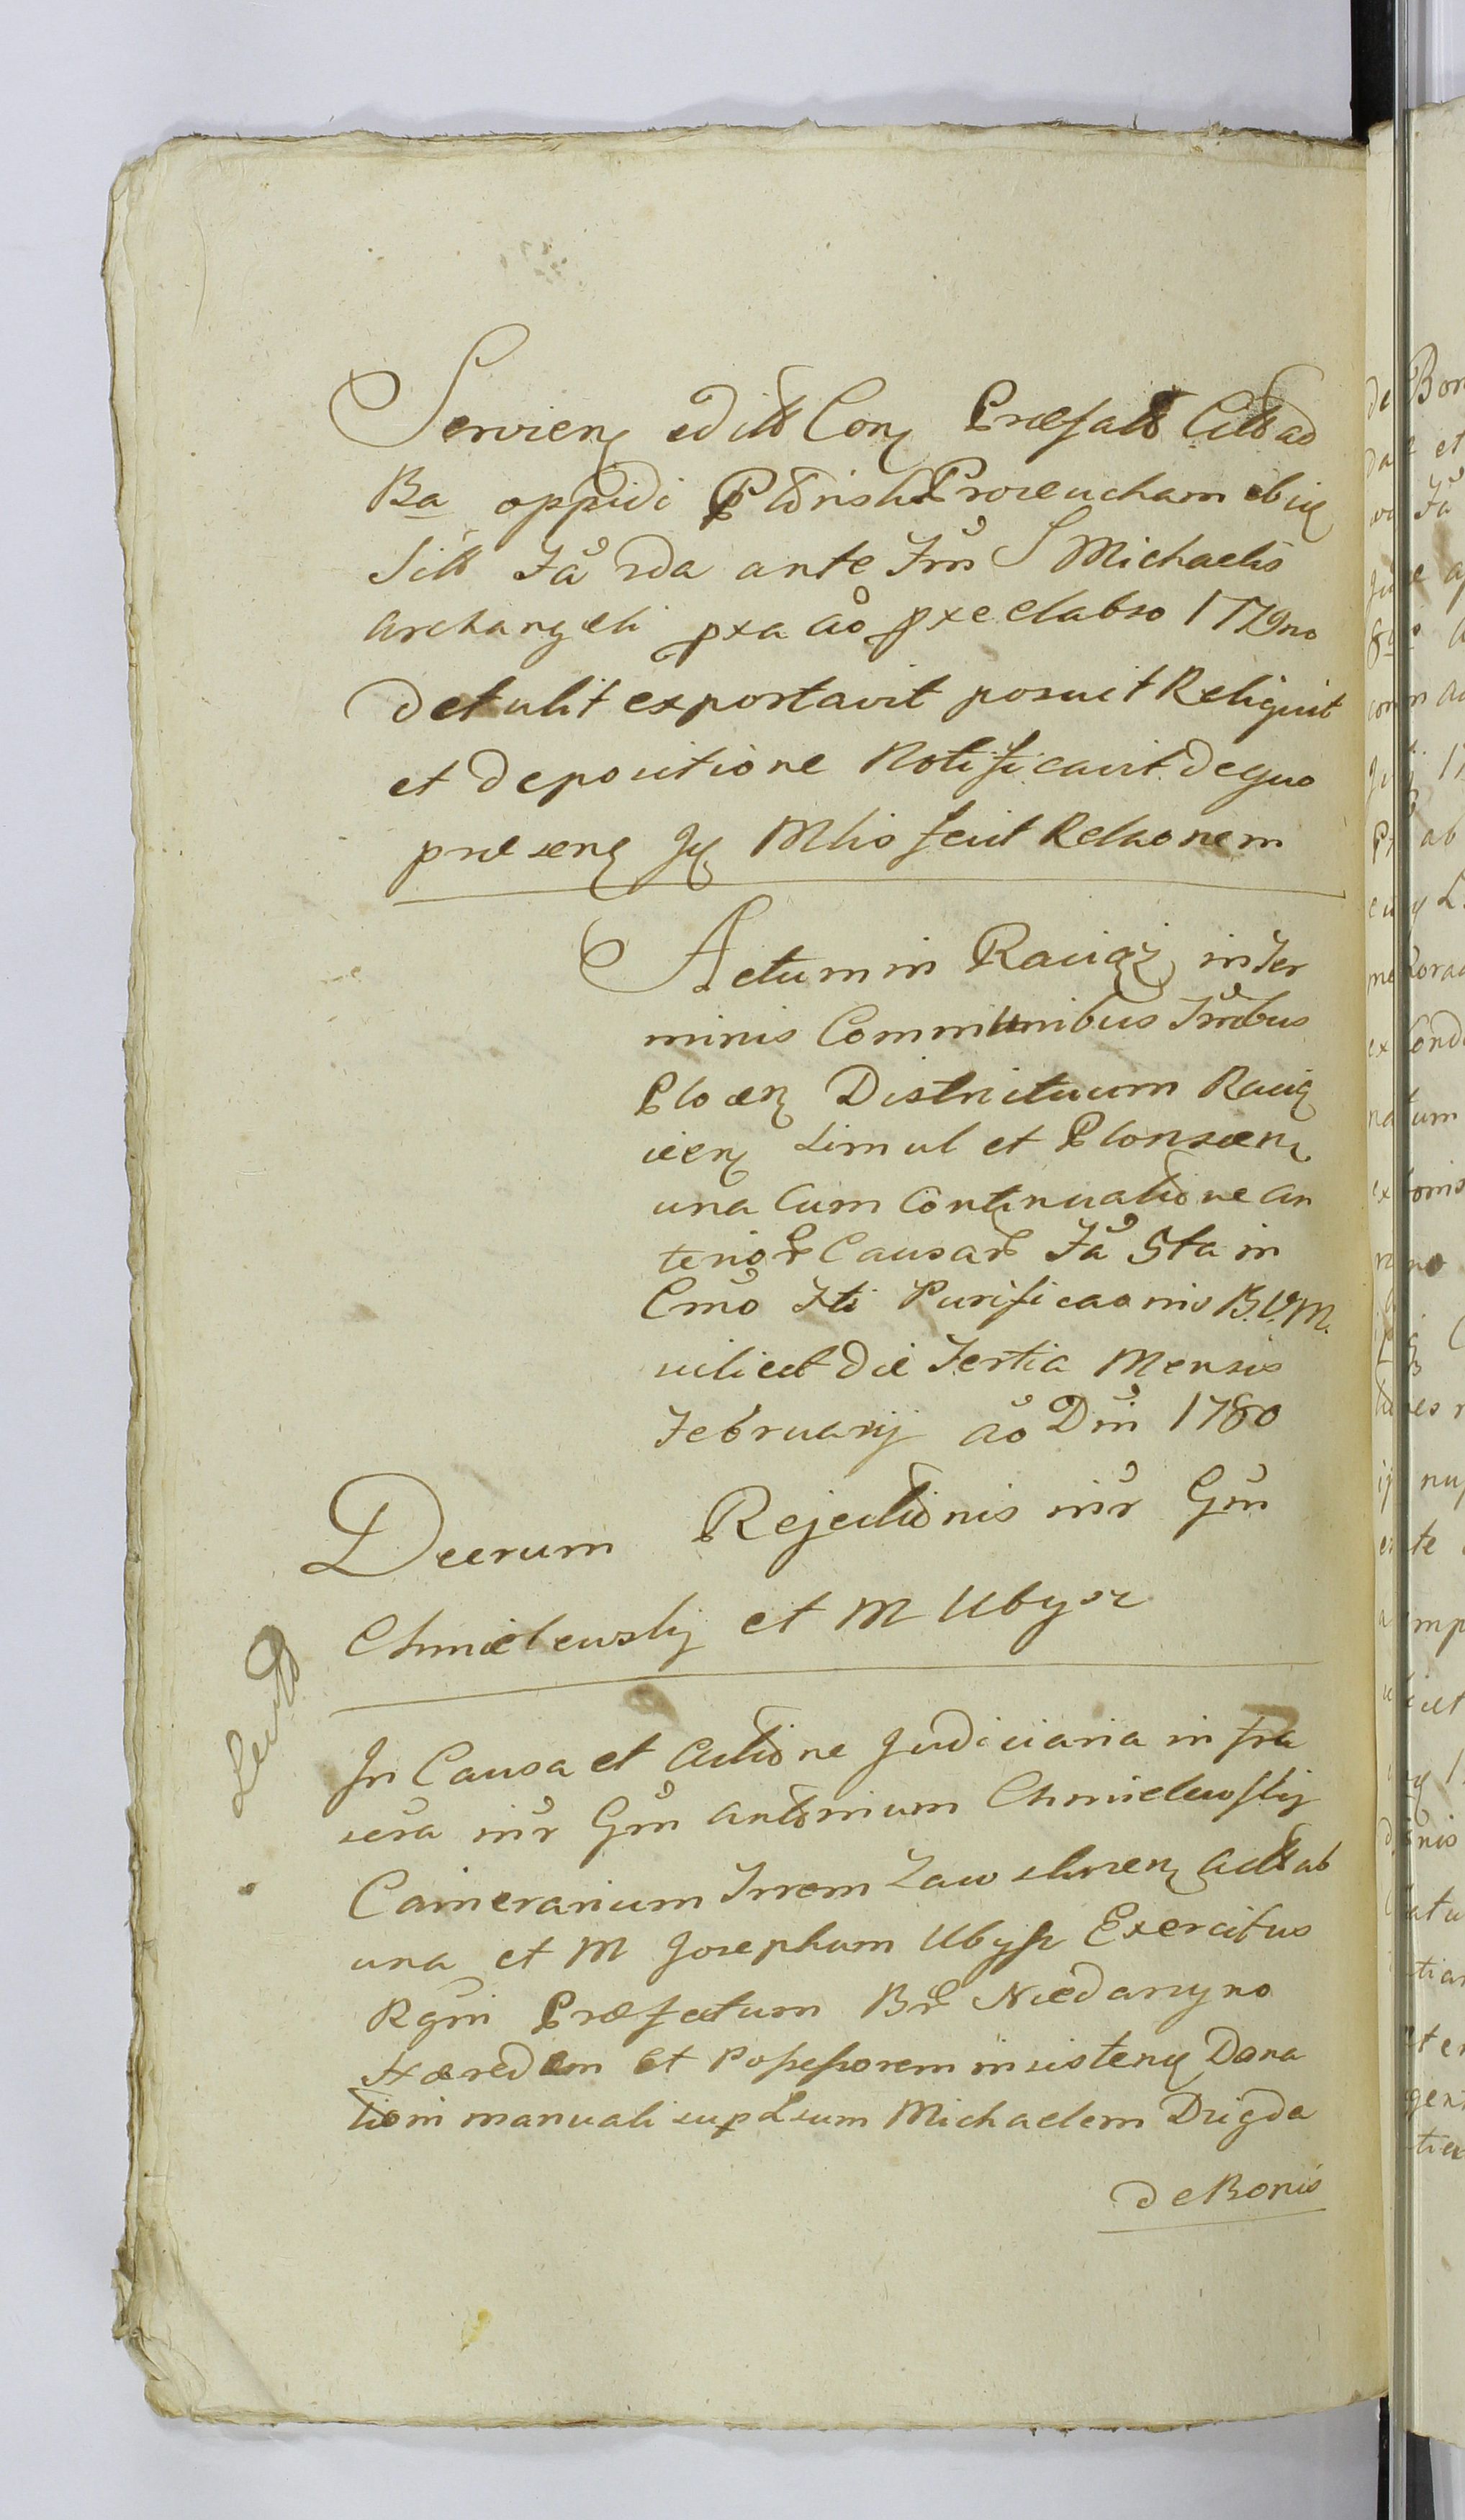 Servien editt Con Præfatt Citt ad
Ba oppidi Proseucham ibiq
Sitt Fã 2da ante Fm̃ S Michaelis
Archangeli pxa aõ pxe elabso 1779no
detulit exportavit posuit Reliquit
et depositione Notificavit de quo
præsen Jq Mlis fecit Relaonem
Actum in Raciąż in Ter
minis Communibus Trr̃bus
Plocen Districtuum Raciąz
ien Simul et Plonscen
una Cum Continuatione An
terior Causar Fã 5ta in
Cr̃no Fti Purificaonis B.V.M.
scilicet die Tertia Mensis
Februarij aõ Dn̄i 1780
Decrum Rejectionis int̃r Gm̃
Chmielewskij et M Ubysz
In Causa et Actione Judiciaria infra
scr̃a int̃r Gm̃ Antonium Chmielewskij
Camerarium Trrem Zawskrzen Act ab
una et M Josephum Ubysz Exercitus
Rgni Præfectum Br Niedarzyno
Hæredem et Possessorem insisten Dona
tioni manuali sup Lsum Michaelem Drigda
de Bonis